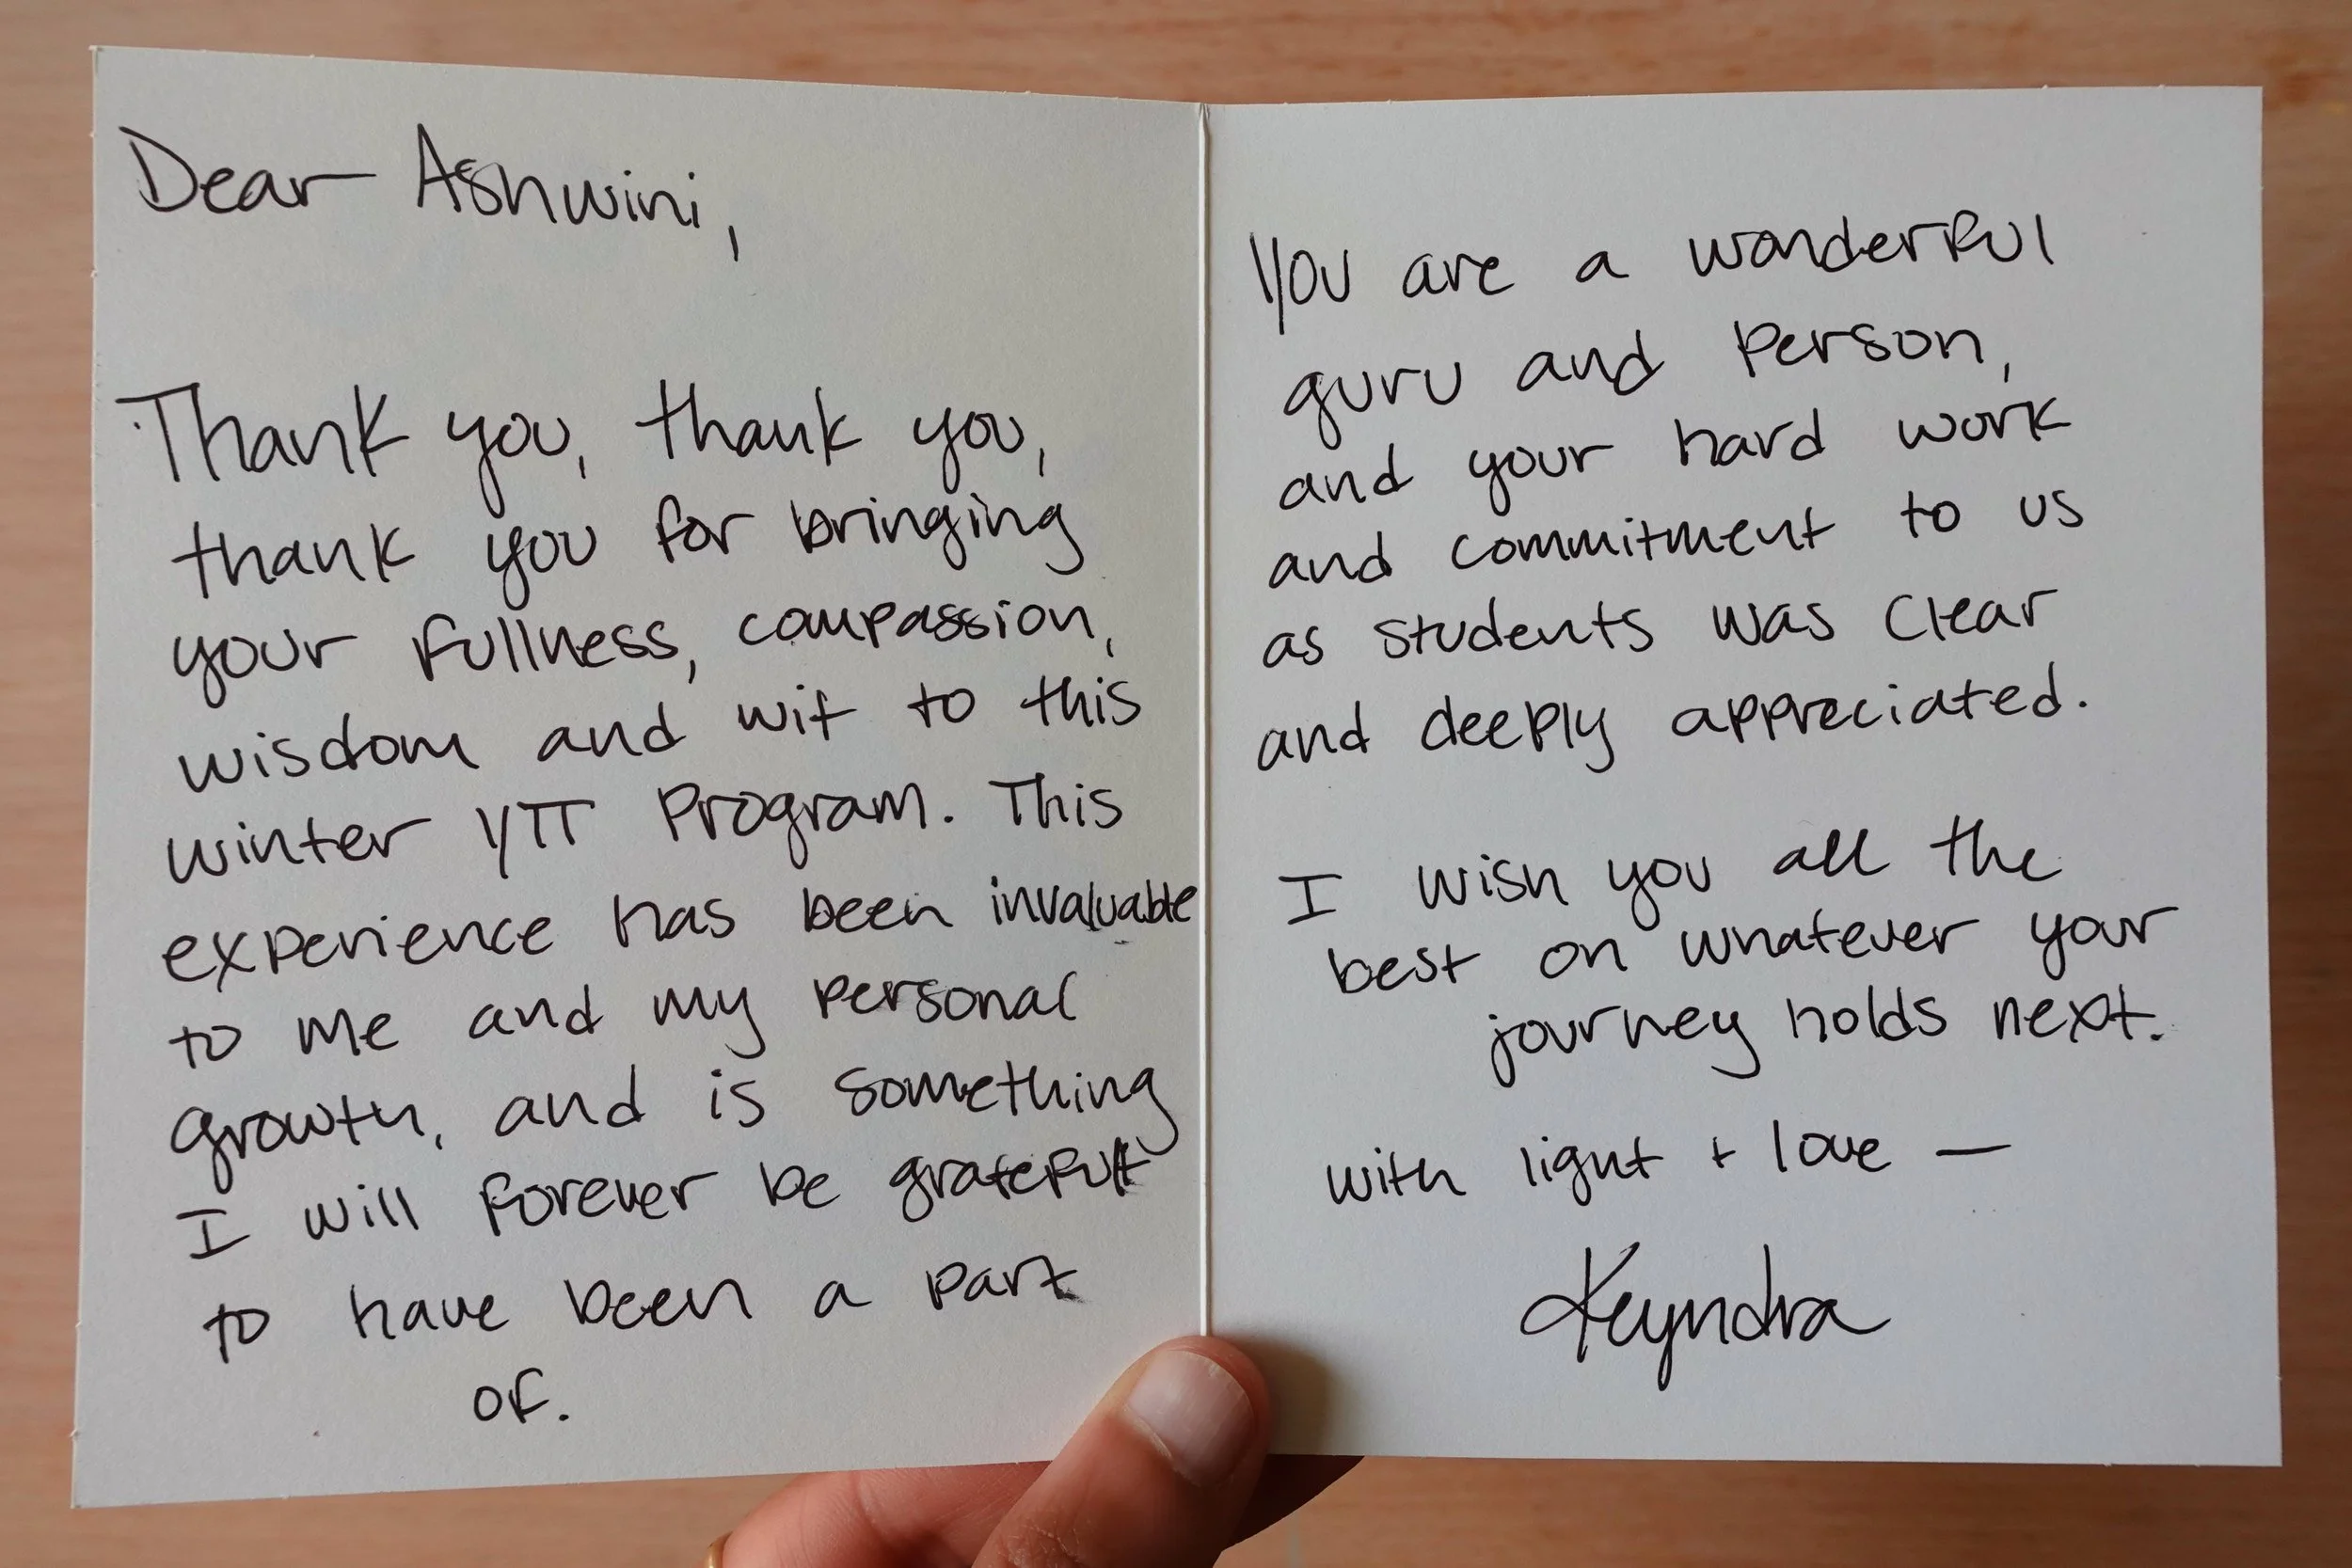 Dear Ashwini,
Thank you, thank you,
thank you for bringing
your fullness, compassion,
wisdom and wit to this
winter YTT program. This
experience has been invaluable
to me and my personal
growth, and is something
I will forever be grateful
to have been a part
of.
You are a wonderful
guru and person,
and your hard work
and commitment to us
as students was clear
and deeply appreciated.
I wish you all the
best on whatever your
journey holds next.
with light + love —
Keyndra